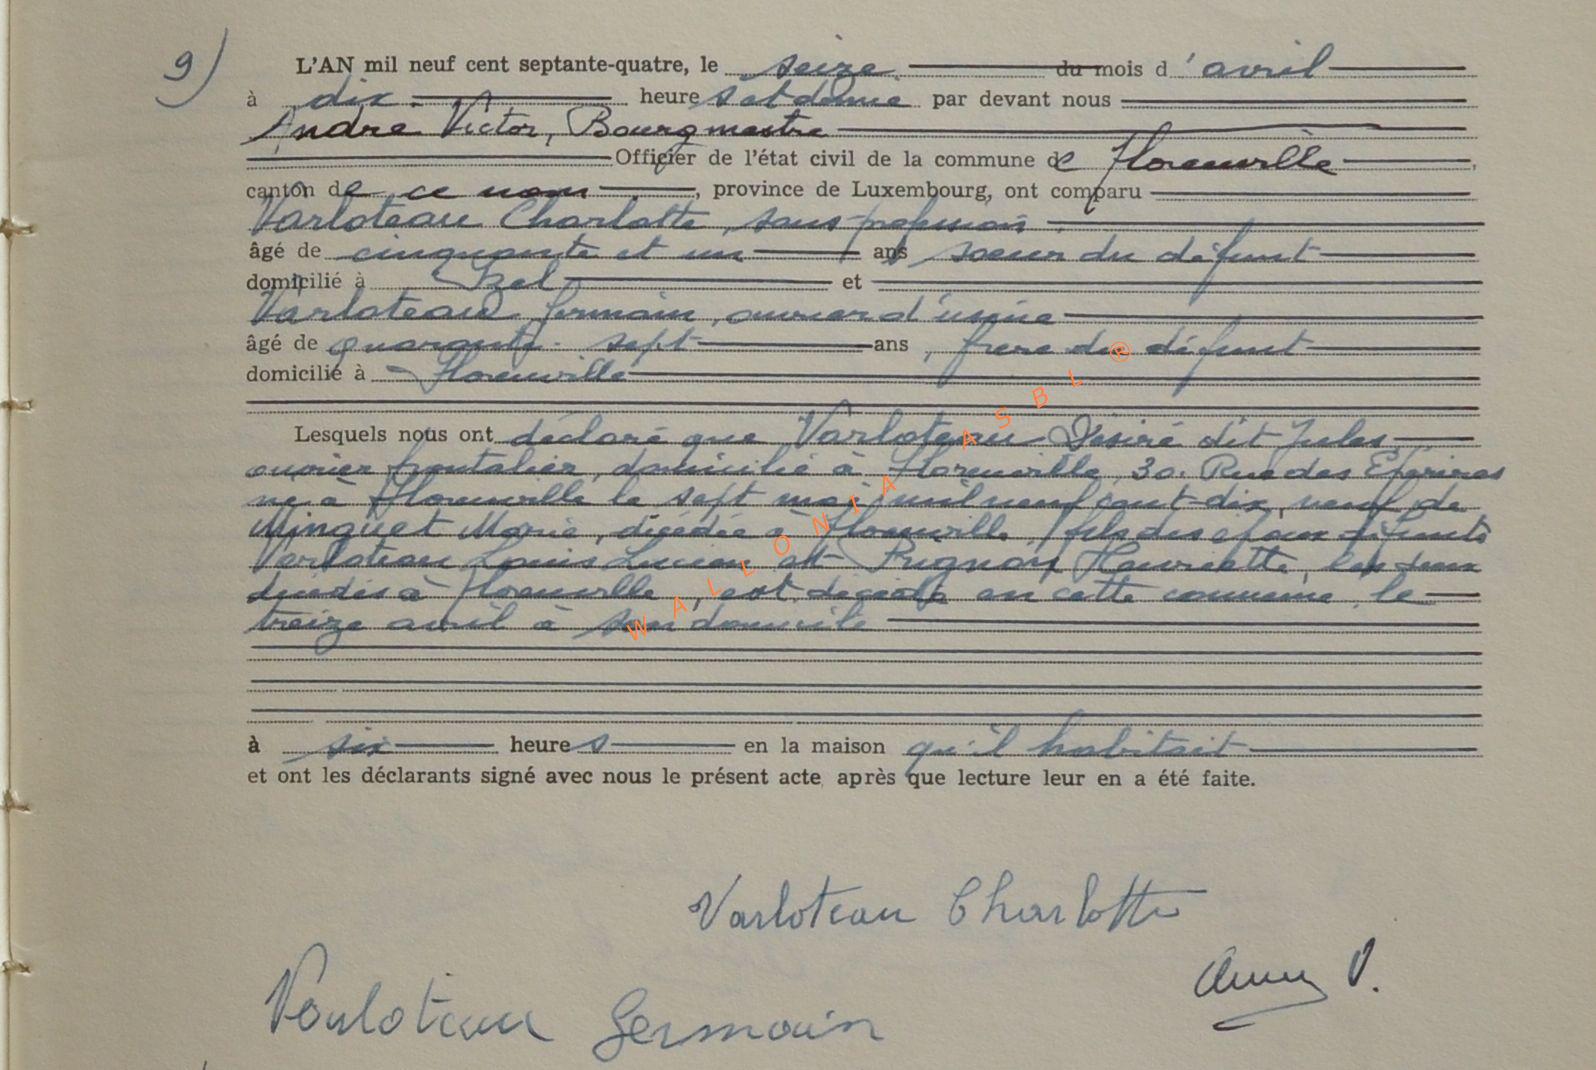 9)
L'AN mil neuf cent septante-quatre, le seize du mois d'avril
à dix heures et demie par devant nous
André Victor, Bourgmestre
Officier de l'état civil de la commune de Florenville,
canton de ce nom, province de Luxembourg, ont comparu
Varloteau Charlotte, sans profession
âgé de cinquante et un ans soeur du défunt
domicilié à Izel et
Varloteau Germain, ouvrier d'usine
âgé de quarante-sept ans, frère du défunt
domicilié à Florenville
Lesquels nous ont déclaré que Varloteau Désiré dit Jules
ouvrier frontalier, domicilié à Florenville, 30, Rue des
né à Florenville le sept mai mil neuf cent dix, veuf de
Minguet Marie, décédée à Florenville, fils des époux défunts
Varloteau Louis Lucien et Pugnon Henriette, les deux
décédés à Florenville, est décédé en cette commune, le
treize avril à son domicile
à six heures en la maison qu'il habitait
et ont les déclarants signé avec nous le présent acte après que lecture leur en a été faite.
WALLONIA ASBL ®
Varloteau Charlotte
V.
Varloteau Germain